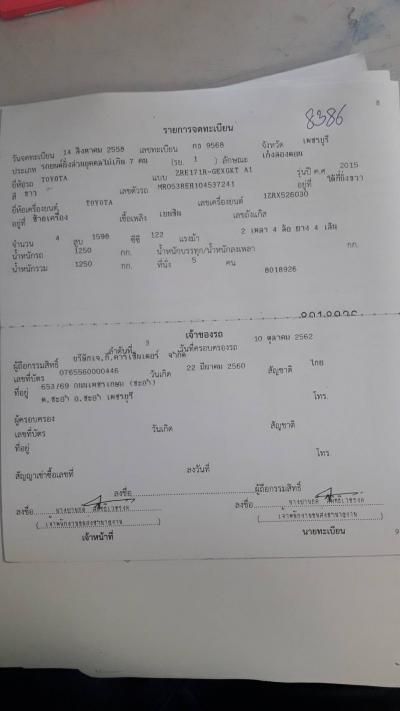 8386
8
รายการจดทะเบียน
วันจดทะเบียน 14 สิงหาคม 2558 เลขทะเบียน กจ 9568 จังหวัด เพชรบุรี
ประเภท รถยนต์นั่งส่วนบุคคลไม่เกิน 7 คน (รย. 1 ) ลักษณะ เก๋งสองตอน
ยี่ห้อรถ TOYOTA แบบ ZRE171R-GEXGKT A1 รุ่นปี ค.ศ. 2015
สี ขาว เลขตัวรถ MR053REH104537241 อยู่ที่
ยี่ห้อเครื่องยนต์ TOYOTA เลขเครื่องยนต์ 1ZRX526030
อยู่ที่ ข้างเครื่อง เชื้อเพลิง เบนซิน เลขถังแก๊ส
จำนวน 4 สูบ 1598 ซีซี 122 แรงม้า 2 เพลา 4 ล้อ ยาง 4 เส้น
น้ำหนักรถ 1250 กก. น้ำหนักบรรทุก/น้ำหนักลงเพลา กก.
น้ำหนักรวม 1250 กก. ที่นั่ง 5 คน
8018926
8018926
เจ้าของรถ
ลำดับที่ 3 วันที่ครอบครองรถ 10 ตุลาคม 2562
ผู้ถือกรรมสิทธิ์ บริษัทเจ.ที.คาร์เซ็นเตอร์ จำกัด
เลขที่บัตร 0765560000446 วันเกิด 22 มีนาคม 2560 สัญชาติ ไทย
ที่อยู่ 653/69 ถนนเพชรเกษม (ชะอำ) โทร.
ต.ชะอำ อ.ชะอำ เพชรบุรี
ผู้ครอบครอง
เลขที่บัตร วันเกิด สัญชาติ
ที่อยู่ โทร.
สัญญาเช่าซื้อเลขที่ ลงวันที่
ลงชื่อ ผู้ถือกรรมสิทธิ์
ลงชื่อ ลงชื่อ
เจ้าหน้าที่ นายทะเบียน
9